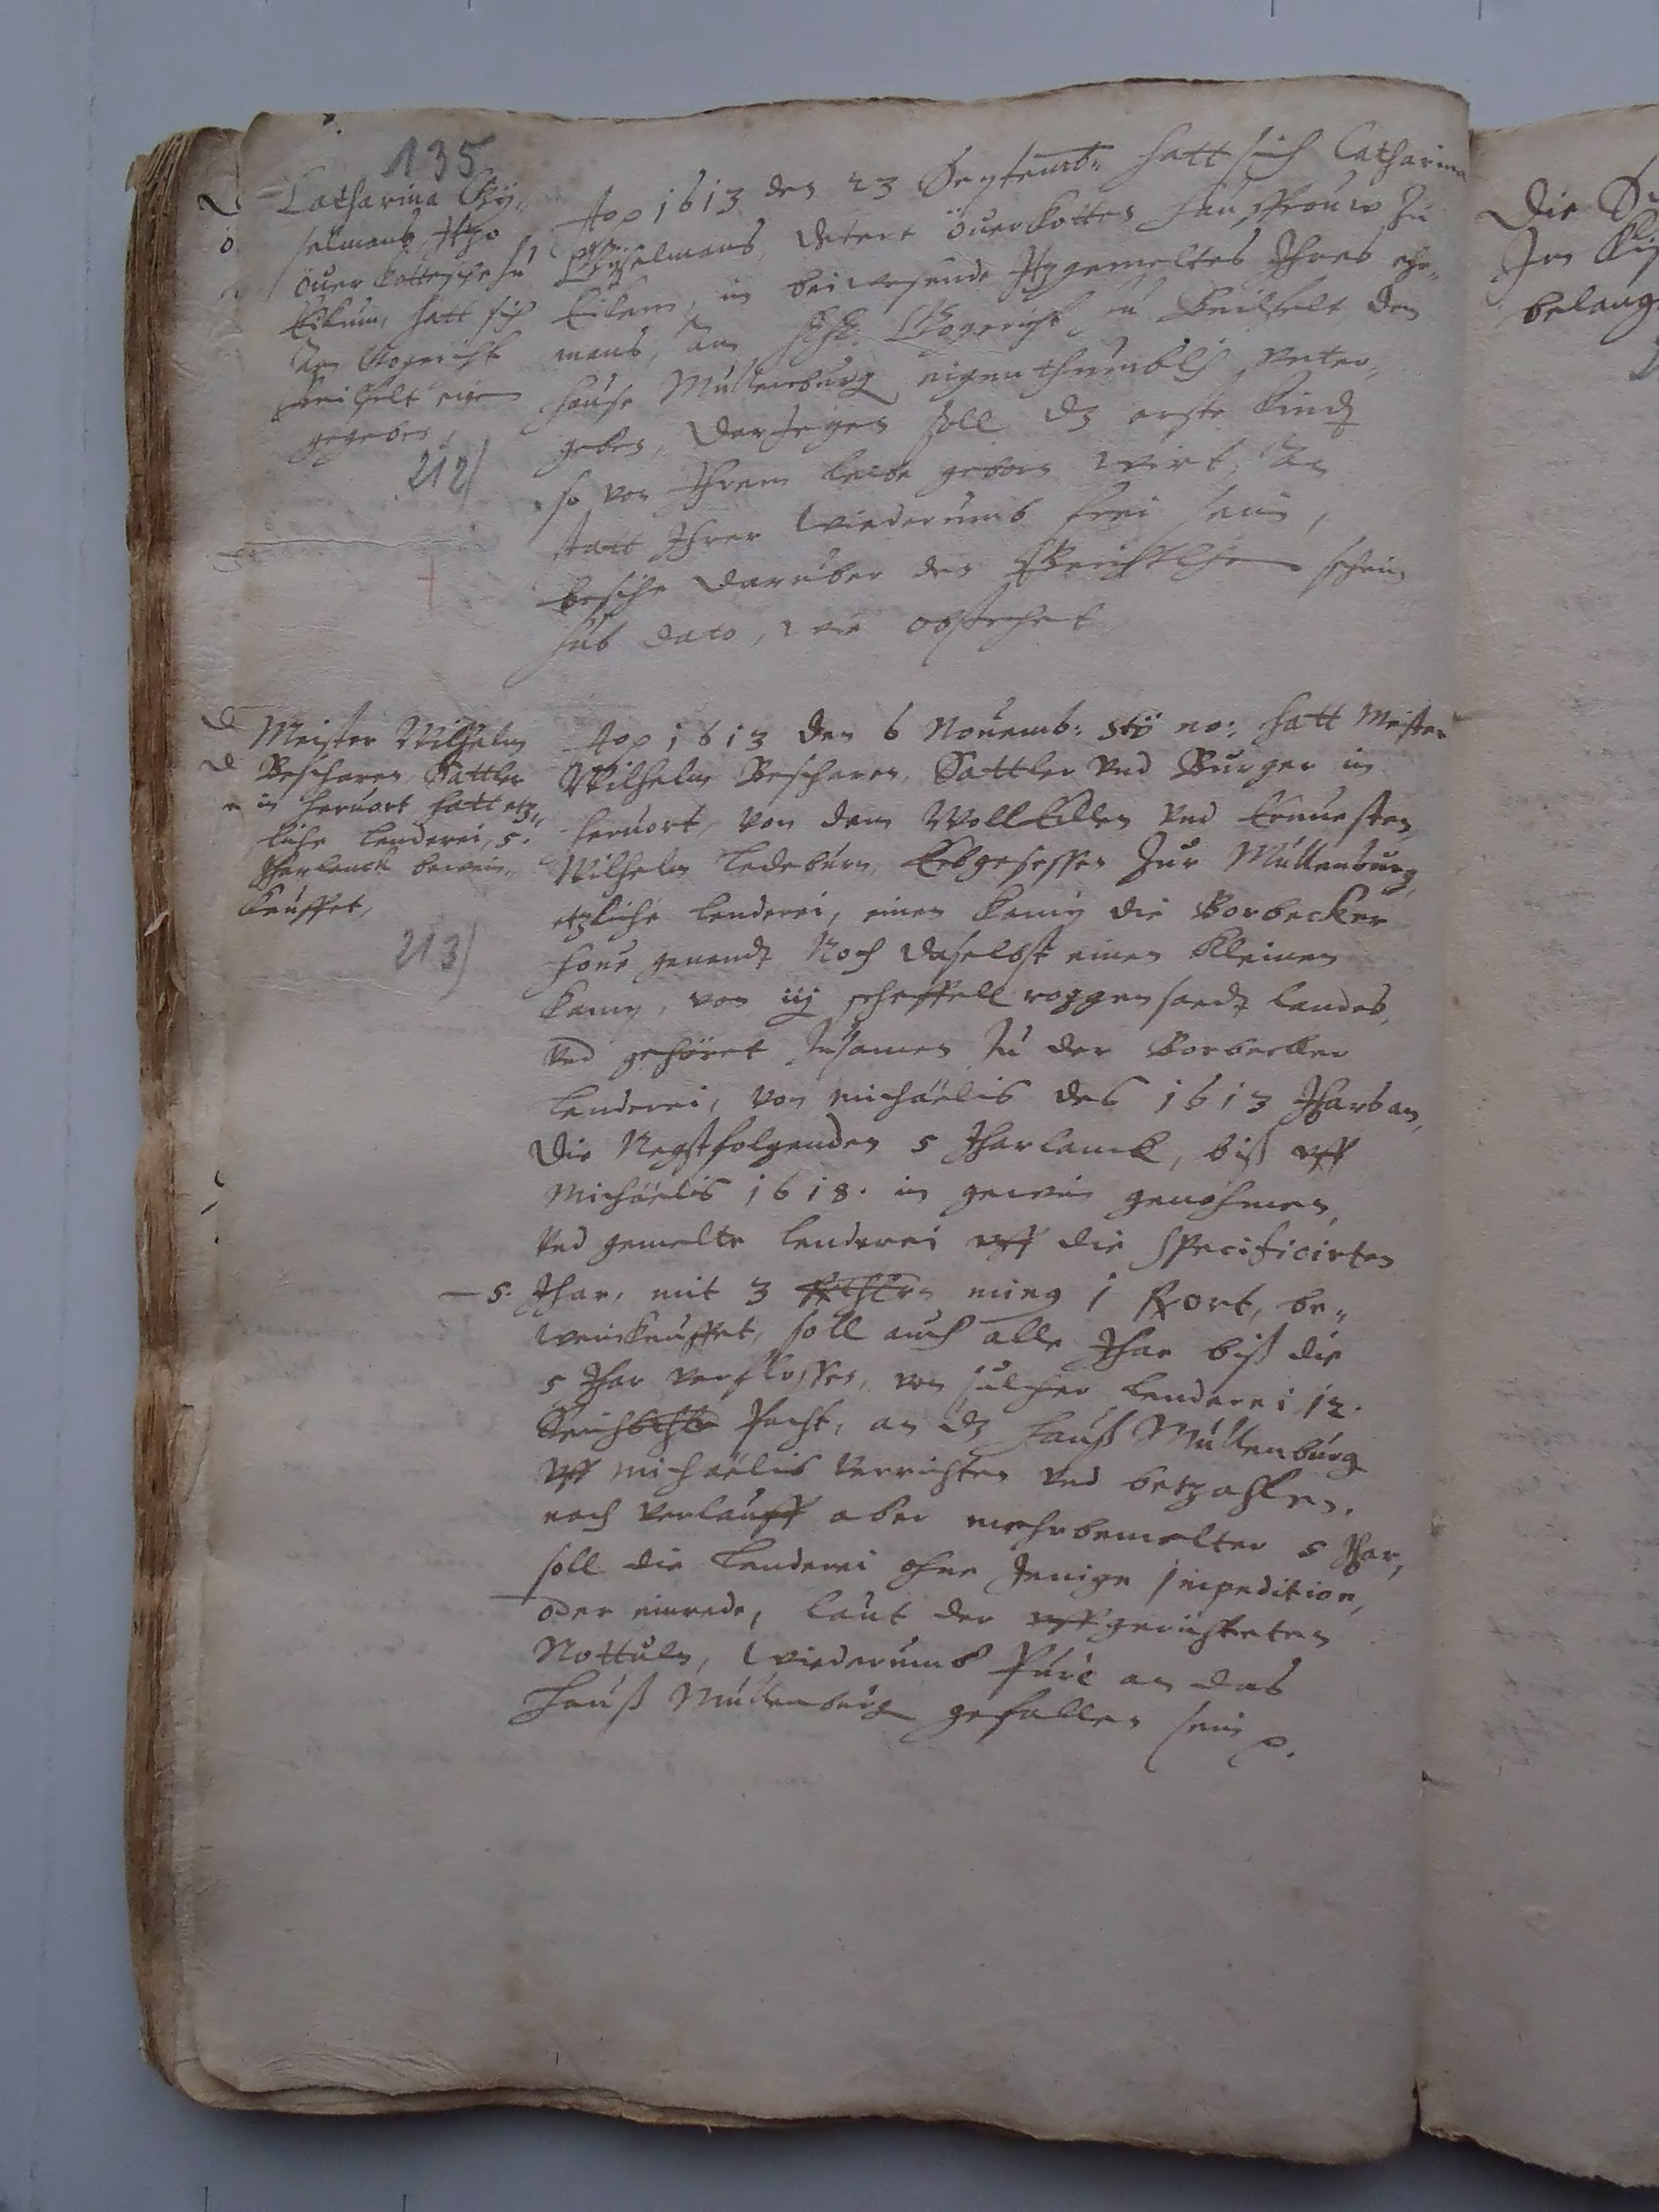 135
Catharina Gÿ-
selmans Itzo
öuerkottesche zu
Eikum, hatt sich
Am Gogericht
eigen
gegeben,
212)
Aō 1613 den 23 Septemb: hatt sich Catharina
Gÿselmans, Detert öuerkottes haussfrouw zu
Eikum, in beiwesende Itzgemeltes Ihres ehe-
mans, Am Gogericht den
hause Mullenburg eigenthumblich
geben, Derjegen soll dz erste Kindt
so von Ihrem leibe geborn wirt, An
statt Ihrer wiederumb frei sein,
besiehe daruber den Gerichtlichen schein
sub dato, wie obstehet
Meister Wilhelm
Bescharen, Sattler
in heruort hatt etz-
liche lenderei, 5.
Jharlanck bewein-
keuffet,
213)
Aō 1613 den 6 Nouemb: stÿ no: hatt Meister
Wilhelm Beschoren, Sattler vnd Burger in
heruort, von dem WollEdlen vnd Ernuesten,
Wilhelm Ledebúrn, Erbgesessen zur Mullenburg,
etzliche lenderei, einen Kamp die Borbecker
houe genandt, Noch daselbst einen kleinen
Kamp, von iij scheffell roggen saedt landes,
vnd gehöret zusamen zu der Borbecker
lenderei, von michäelis des 1613 Jhars an,
die Negstfolgenden 5 Jharlanck, biß vff
Michäelis 1618. in gewin genohmen,
vnd gemelte lenderei vff die specificirten
5. Jhar, mit 3 Rthlrn ming 1 Kort, be-
weinkeuffet, soll auch alle Jhar biß die
5 Jhar verflossen, von sulcher lenderei 12.
Pacht, an dz hauß Mullenburg
vff michäelis verrichten vnd betzahlen.
nach verlauff aber mehrbemelter 5 Jhar,
soll die lenderei ohne Jenige impedition,
oder einrede, laut der vffgerichteten
Nottuln, wiederumb Puré an das
hauß Mullenburg gefallen sein p.